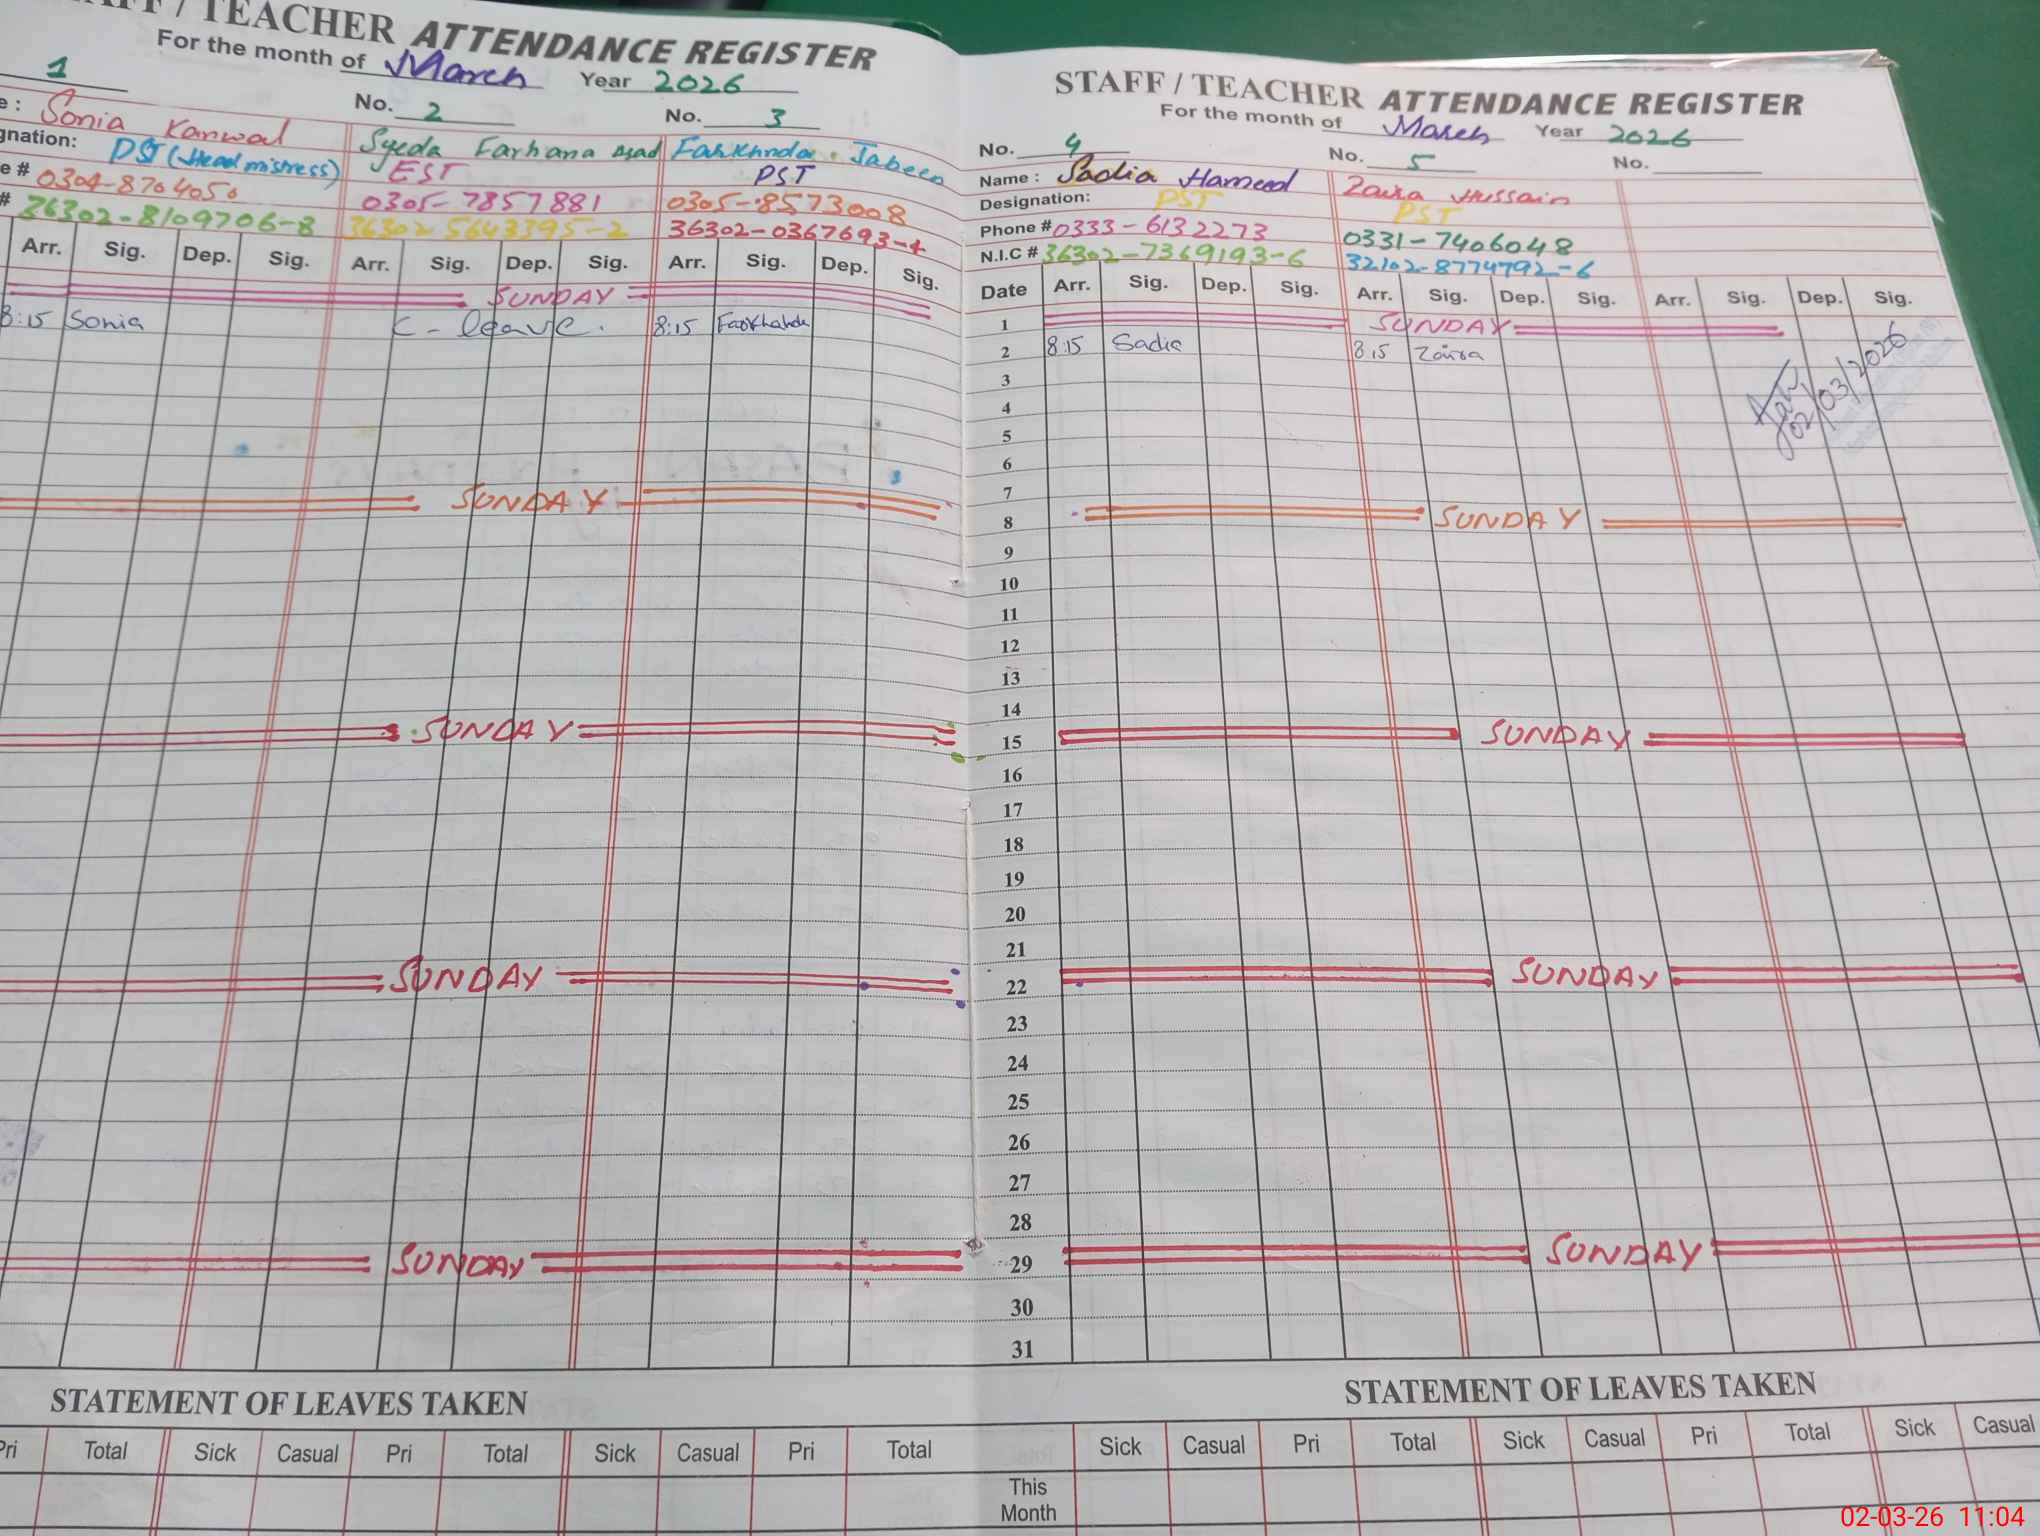 STAFF / TEACHER ATTENDANCE REGISTER
For the month of March Year 2026
1 No. 2 No. 3
e : Sonia Kanwal Syeda Farhana Asad Farkhnda Jabeen
gnation: PST (Head mistress) EST PST
e # 0304-8704050 0305-7857881 0305-8573008
# 36302-8109706-8 36302-5643395-2 36302-0367693-4
Arr. Sig. Dep. Sig. Arr. Sig. Dep. Sig. Arr. Sig. Dep. Sig.
SUNDAY
8:15 Sonia C-leave. 8:15 Farkhanda
SUNDAY
SUNDAY
SUNDAY
SUNDAY
STATEMENT OF LEAVES TAKEN
Pri Total Sick Casual Pri Total Sick Casual Pri Total
STAFF / TEACHER ATTENDANCE REGISTER
For the month of March Year 2026
No. 4 No. 5 No.
Name : Sadia Hameed Zaira Hussain
Designation: PST PST
Phone # 0333-6132273 0331-7406048
N.I.C # 36302-7369193-6 32102-8774792-6
Date Arr. Sig. Dep. Sig. Arr. Sig. Dep. Sig. Arr. Sig. Dep. Sig.
1 SUNDAY
2 8:15 Sadia 8:15 Zaira
02/03/2026
3
4
5
6
7
8 SUNDAY
9
10
11
12
13
14
15 SUNDAY
16
17
18
19
20
21
22 SUNDAY
23
24
25
26
27
28
29 SUNDAY
30
31
STATEMENT OF LEAVES TAKEN
Sick Casual Pri Total Sick Casual Pri Total Sick Casual
This
Month
02-03-26 11:04